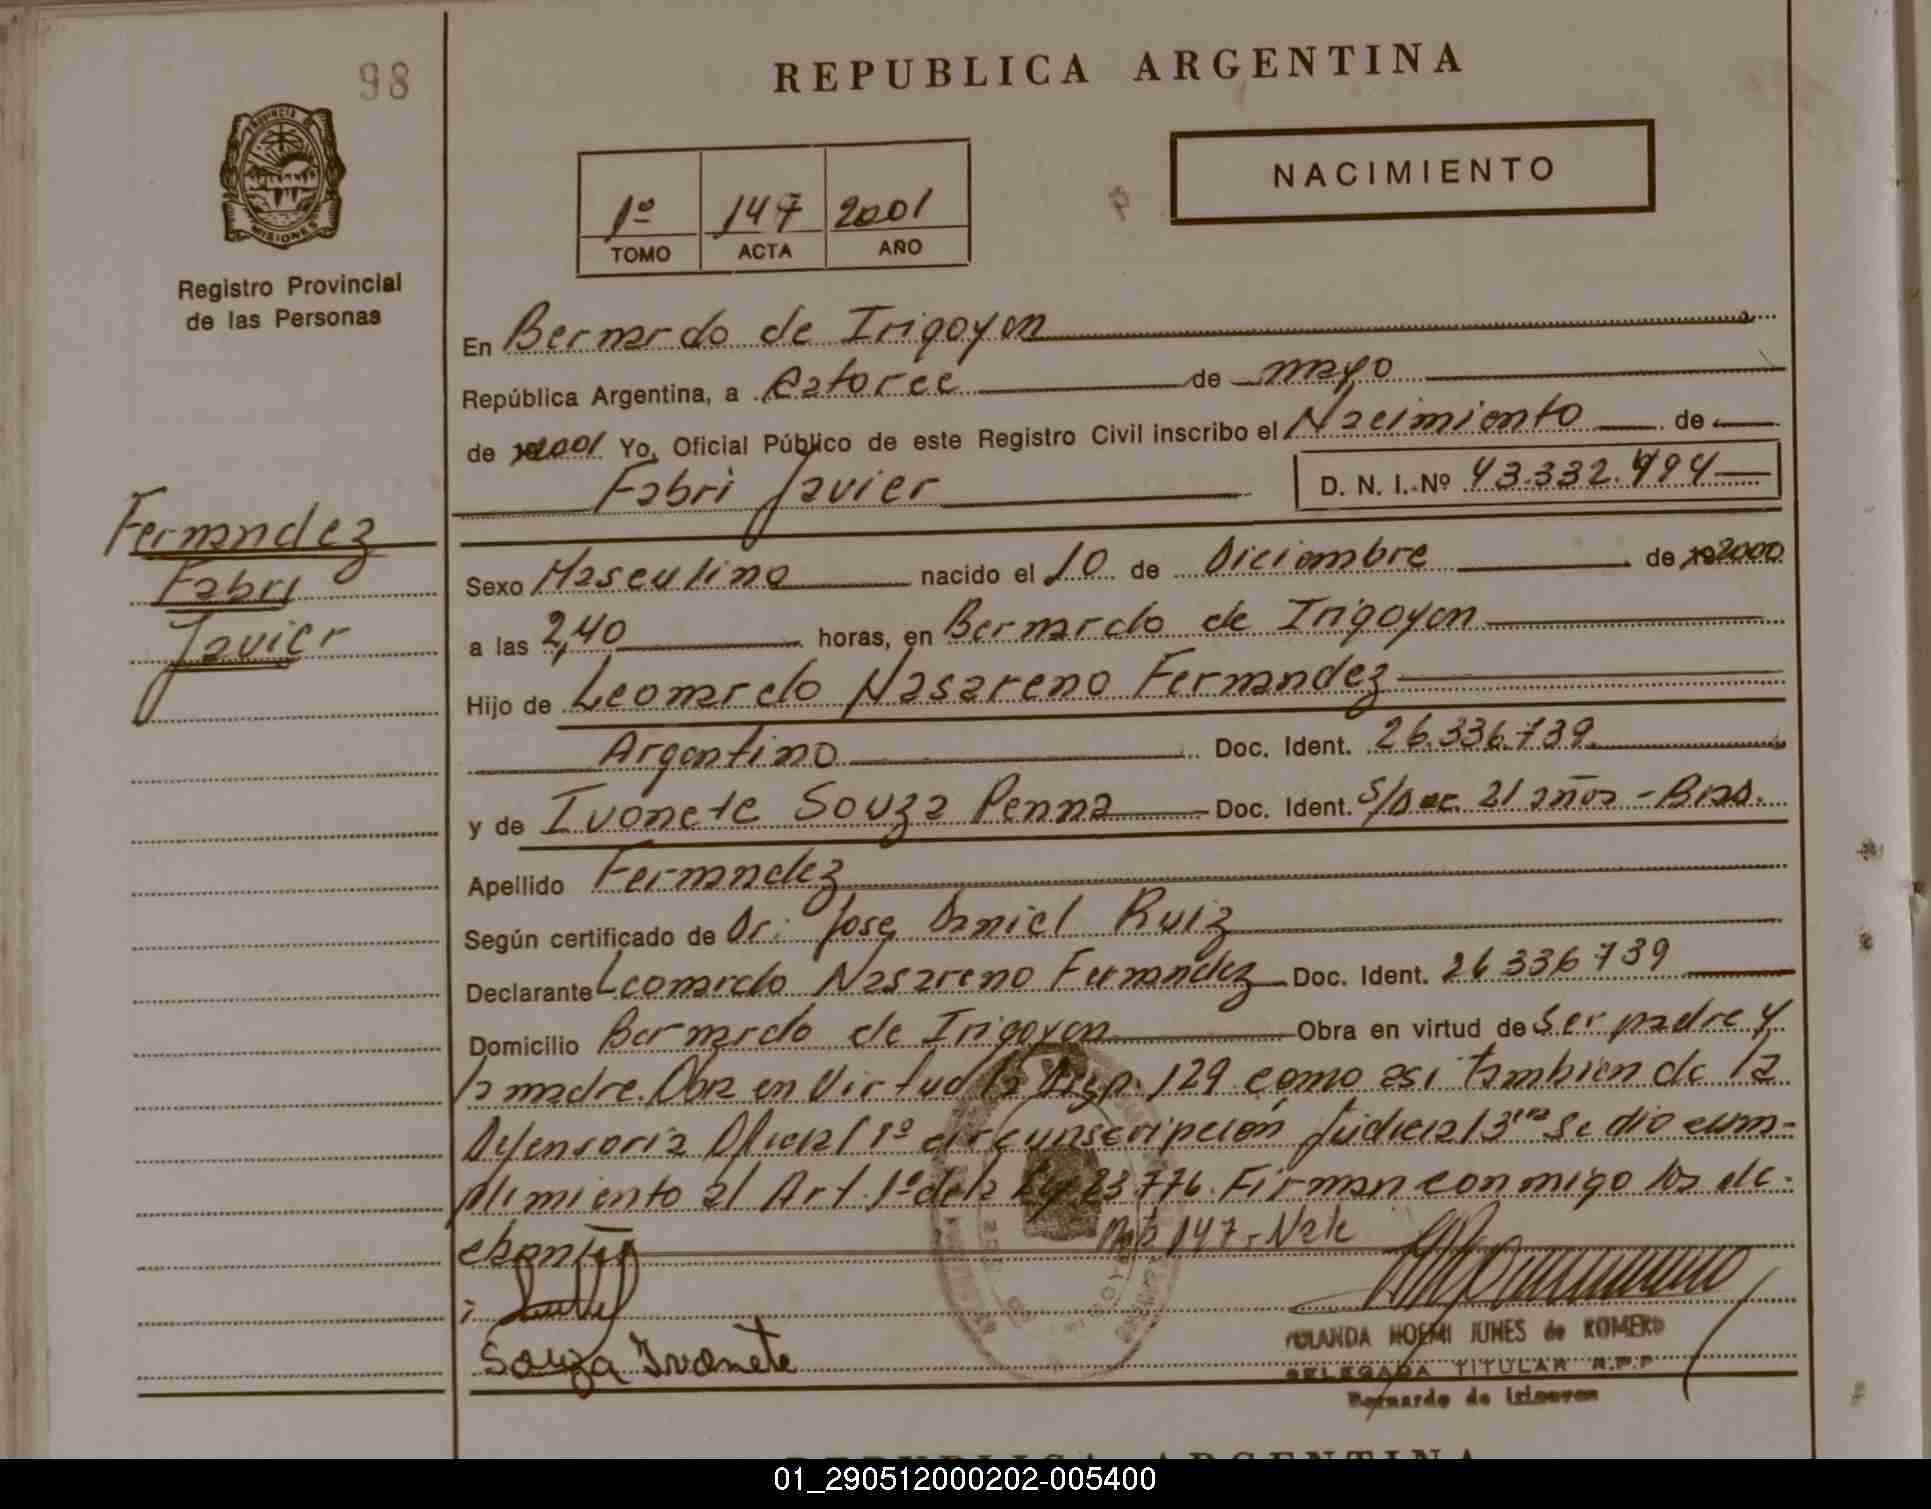 98
REPUBLICA ARGENTINA
PROVINCIA DE
MISIONES
Registro Provincial
de las Personas
NACIMIENTO
1º 147 2001
TOMO ACTA AÑO
En Bernardo de Irigoyen
República Argentina, a Catorce de mayo
de 2001 Yo, Oficial Público de este Registro Civil inscribo el Nacimiento de
Fabri Javier D. N. I. Nº 43.332.994
Fernandez
Fabri
Javier
Sexo Masculino nacido el 10 de Diciembre de 2000
a las 2,40 horas, en Bernardo de Irigoyen
Hijo de Leonardo Nasareno Fernandez
Argentino Doc. Ident. 26.336.739
y de Ivonete Souza Penna Doc. Ident. S/Doc. 21 años - Bras.
Apellido Fernandez
Según certificado de Dr. Jose Daniel Ruiz
Declarante Leonardo Nasareno Fernandez Doc. Ident. 26 336 739
Domicilio Bernardo de Irigoyen Obra en virtud de ser padre y
la madre. Obra en Virtud la Disp. 129 como asi tambien de la
Defensoria Oficial 1º circunscripcion Judicial 3ra Se dio cum-
plimiento al Art. 1º de la Ley 23.776. Firman conmigo los de-
147.
Souza Ivonete
YOLANDA NOEMI JUNES de ROMERO
DELEGADA TITULAR R.P.P
Bernardo de Irigoyen
REPUBLICA ARGENTINA
01_290512000202-005400